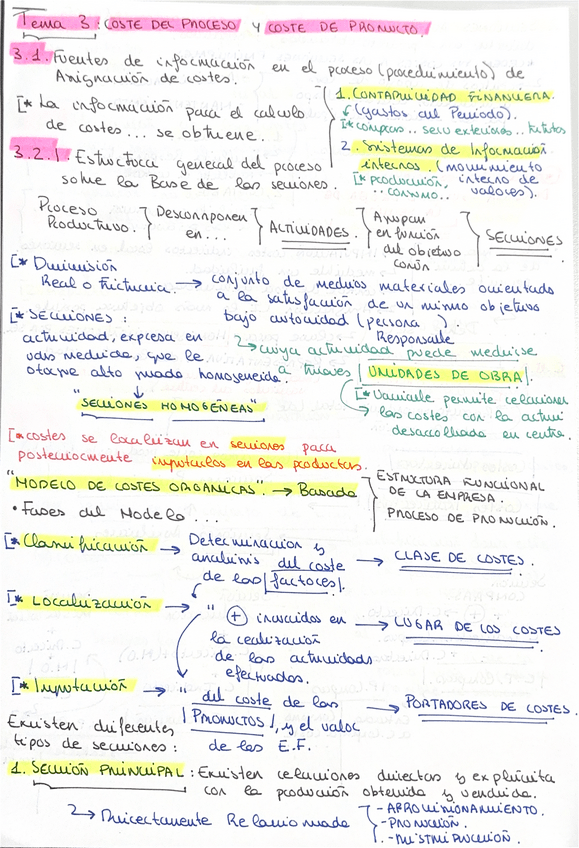 Tema 3: COSTE DEL PROCESO y COSTE DE PRODUCTO.
3.1. Fuentes de información en el proceso (procedimiento) de
Asignación de costes.
[* La información para el calculo
de costes... se obtiene.
1. CONTABILIDAD FINANCIERA.
(gastos del Periodo).
[* compras.. serv exteriores.. tributos
2. Sistemas de Información
internos. (movimiento
interno de
valores).
[* producción,
.. consumo..
3.2.1. Estructura general del proceso
sobre la Base de las secciones.
Proceso
Productivo.
Descomponen
en...
ACTIVIDADES.
Agrupan
en función
del objetivo
común
SECCIONES
[* Dimisión
Real o Ficticia. → conjunto de medios materiales orientados
a la satisfacción de un mismo objetivo
bajo autoridad (persona ).
Responsable
[* SECCIONES:
actividad, expresa en
uds medida, que le
otorgue alto grado homogeneida.
↓
"SECCIONES HOMOGÉNEAS"
→ cuya actividad puede medirse
a través |UNIDADES DE OBRA|.
[* Variable permite relacionar
los costes con la activi
desarrollada en centro.
[* costes se localizan en secciones para
posteriormente imputarlos en los productos.
"MODELO DE COSTES ORGANICAS". → Basada
ESTRUCTURA FUNCIONAL
DE LA EMPRESA.
PROCESO DE PRODUCCIÓN.
• Fases del Modelo...
[* Clasificación → Determinacion y
analisis del coste
de los |factores|.
→ CLASE DE COSTES.
[* LOCALIZACIÓN → " (+) incurridos en
la realización
de las actividades
efectuadas.
→ LUGAR DE LOS COSTES
[* Imputación → del coste de los
|PRODUCTOS|, y el valor
de las E.F.
→ PORTADORES DE COSTES.
Existen diferentes
tipos de secciones:
1. SECCIÓN PRINCIPAL: Existen relaciones directas y explicita
con la producción obtenida y vendida.
→ Directamente Relacionada
- APROVISIONAMIENTO.
- PRODUCCIÓN.
- DISTRIBUCIÓN.